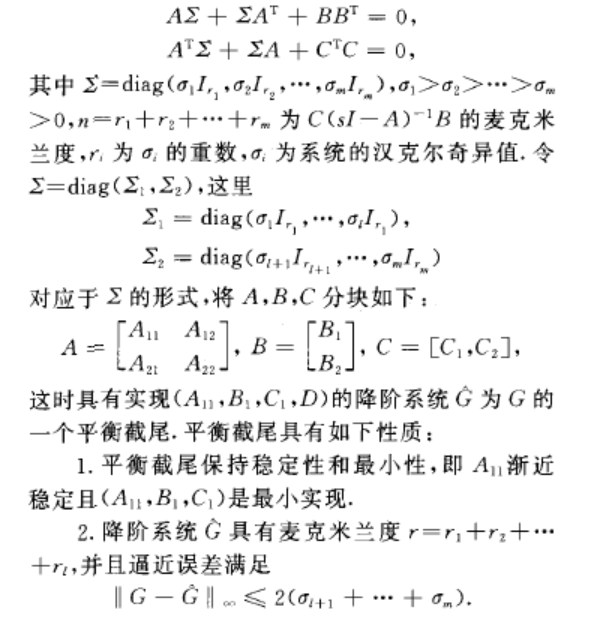 AΣ + ΣAᵀ + BBᵀ = 0,
AᵀΣ + ΣA + CᵀC = 0,
其中 Σ=diag(σ₁I_{r₁},σ₂I_{r₂},⋯,σₘI_{rₘ}),σ₁>σ₂>⋯>σₘ
>0,n=r₁+r₂+⋯+rₘ 为 C(sI−A)⁻¹B 的麦克米
兰度,rᵢ 为 σᵢ 的重数,σᵢ 为系统的汉克尔奇异值. 令
Σ=diag(Σ₁,Σ₂),这里
Σ₁ = diag(σ₁I_{r₁},⋯,σₗI_{r₁}),
Σ₂ = diag(σₗ₊₁I_{rₗ₊₁},⋯,σₘI_{rₘ})
对应于 Σ 的形式,将 A,B,C 分块如下:
A = [A₁₁ A₁₂; A₂₁ A₂₂], B = [B₁; B₂], C = [C₁,C₂],
这时具有实现(A₁₁,B₁,C₁,D)的降阶系统 Ĝ 为 G 的
一个平衡截尾. 平衡截尾具有如下性质:
1. 平衡截尾保持稳定性和最小性,即 A₁₁渐近
稳定且(A₁₁,B₁,C₁)是最小实现.
2. 降阶系统 Ĝ 具有麦克米兰度 r=r₁+r₂+⋯
+rₗ,并且逼近误差满足
‖G − Ĝ‖∞ ≤ 2(σₗ₊₁ + ⋯ + σₘ).